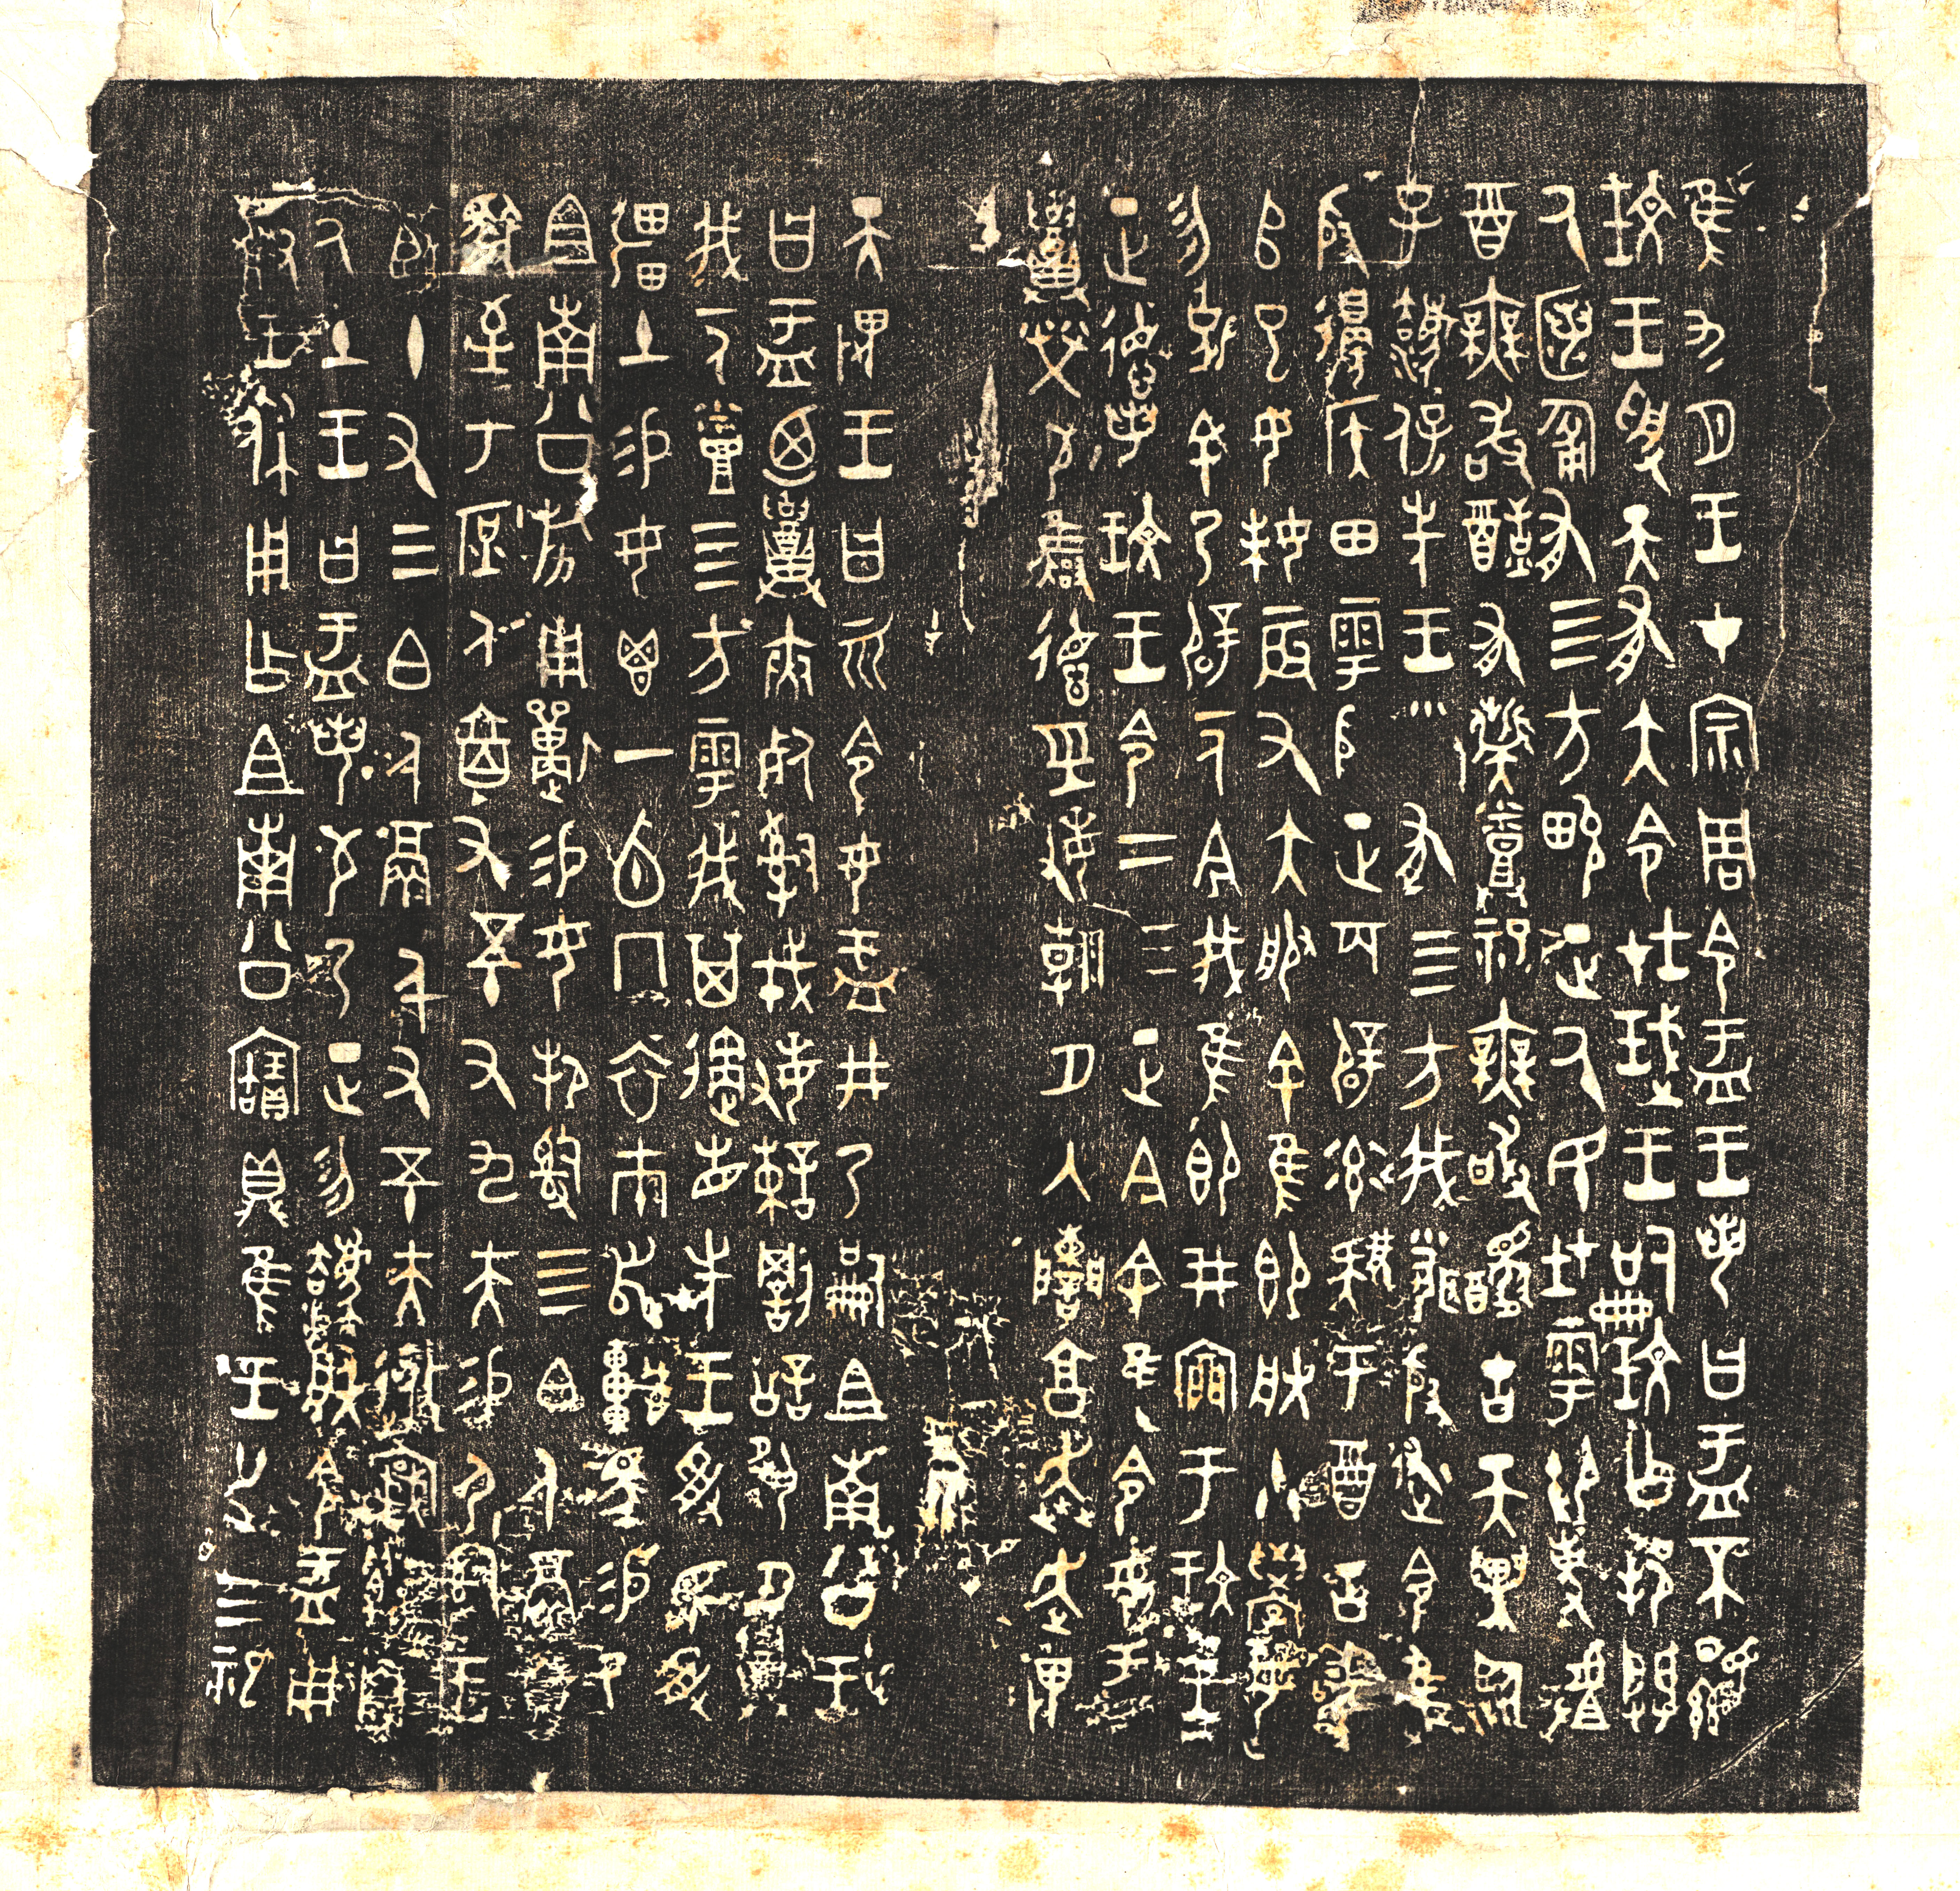 隹九月王才宗周令盂王若曰盂不顯
玟王受天有大令在珷王嗣玟乍邦闢
厥匿匍有四方畯正厥民在雩御事𠭯
酉無敢酖有祡烝祀無敢醻古天異臨
子灋保先王有四方我聞殷述令隹
殷邊侯田雩殷正百辟率肄于酉古喪
𠂤巳女妹辰有大服余隹即朕小學女
勿余乃辟一人今我隹即井于玟王
正德若玟王令二三正今余隹令女盂
召榮敬雍德巠敏朝夕入讕享奔走畏
天畏王曰而令女盂井乃嗣且南公王
曰盂廼召夾死司戎敏諫罰訟夙夕召
我一人烝四方雩我其遹省先王受民受
疆土易女鬯一卣冂衣巿舄車馬易乃
且南公旂用狩易女邦司四白人鬲自
馭至于庶人六百又五十又九夫易尸司
王臣十又三白人鬲千又五十夫遷
自厥土王曰盂若敬乃正勿灋朕令盂用
對王休用乍且南公寶鼎隹王廿又三祀